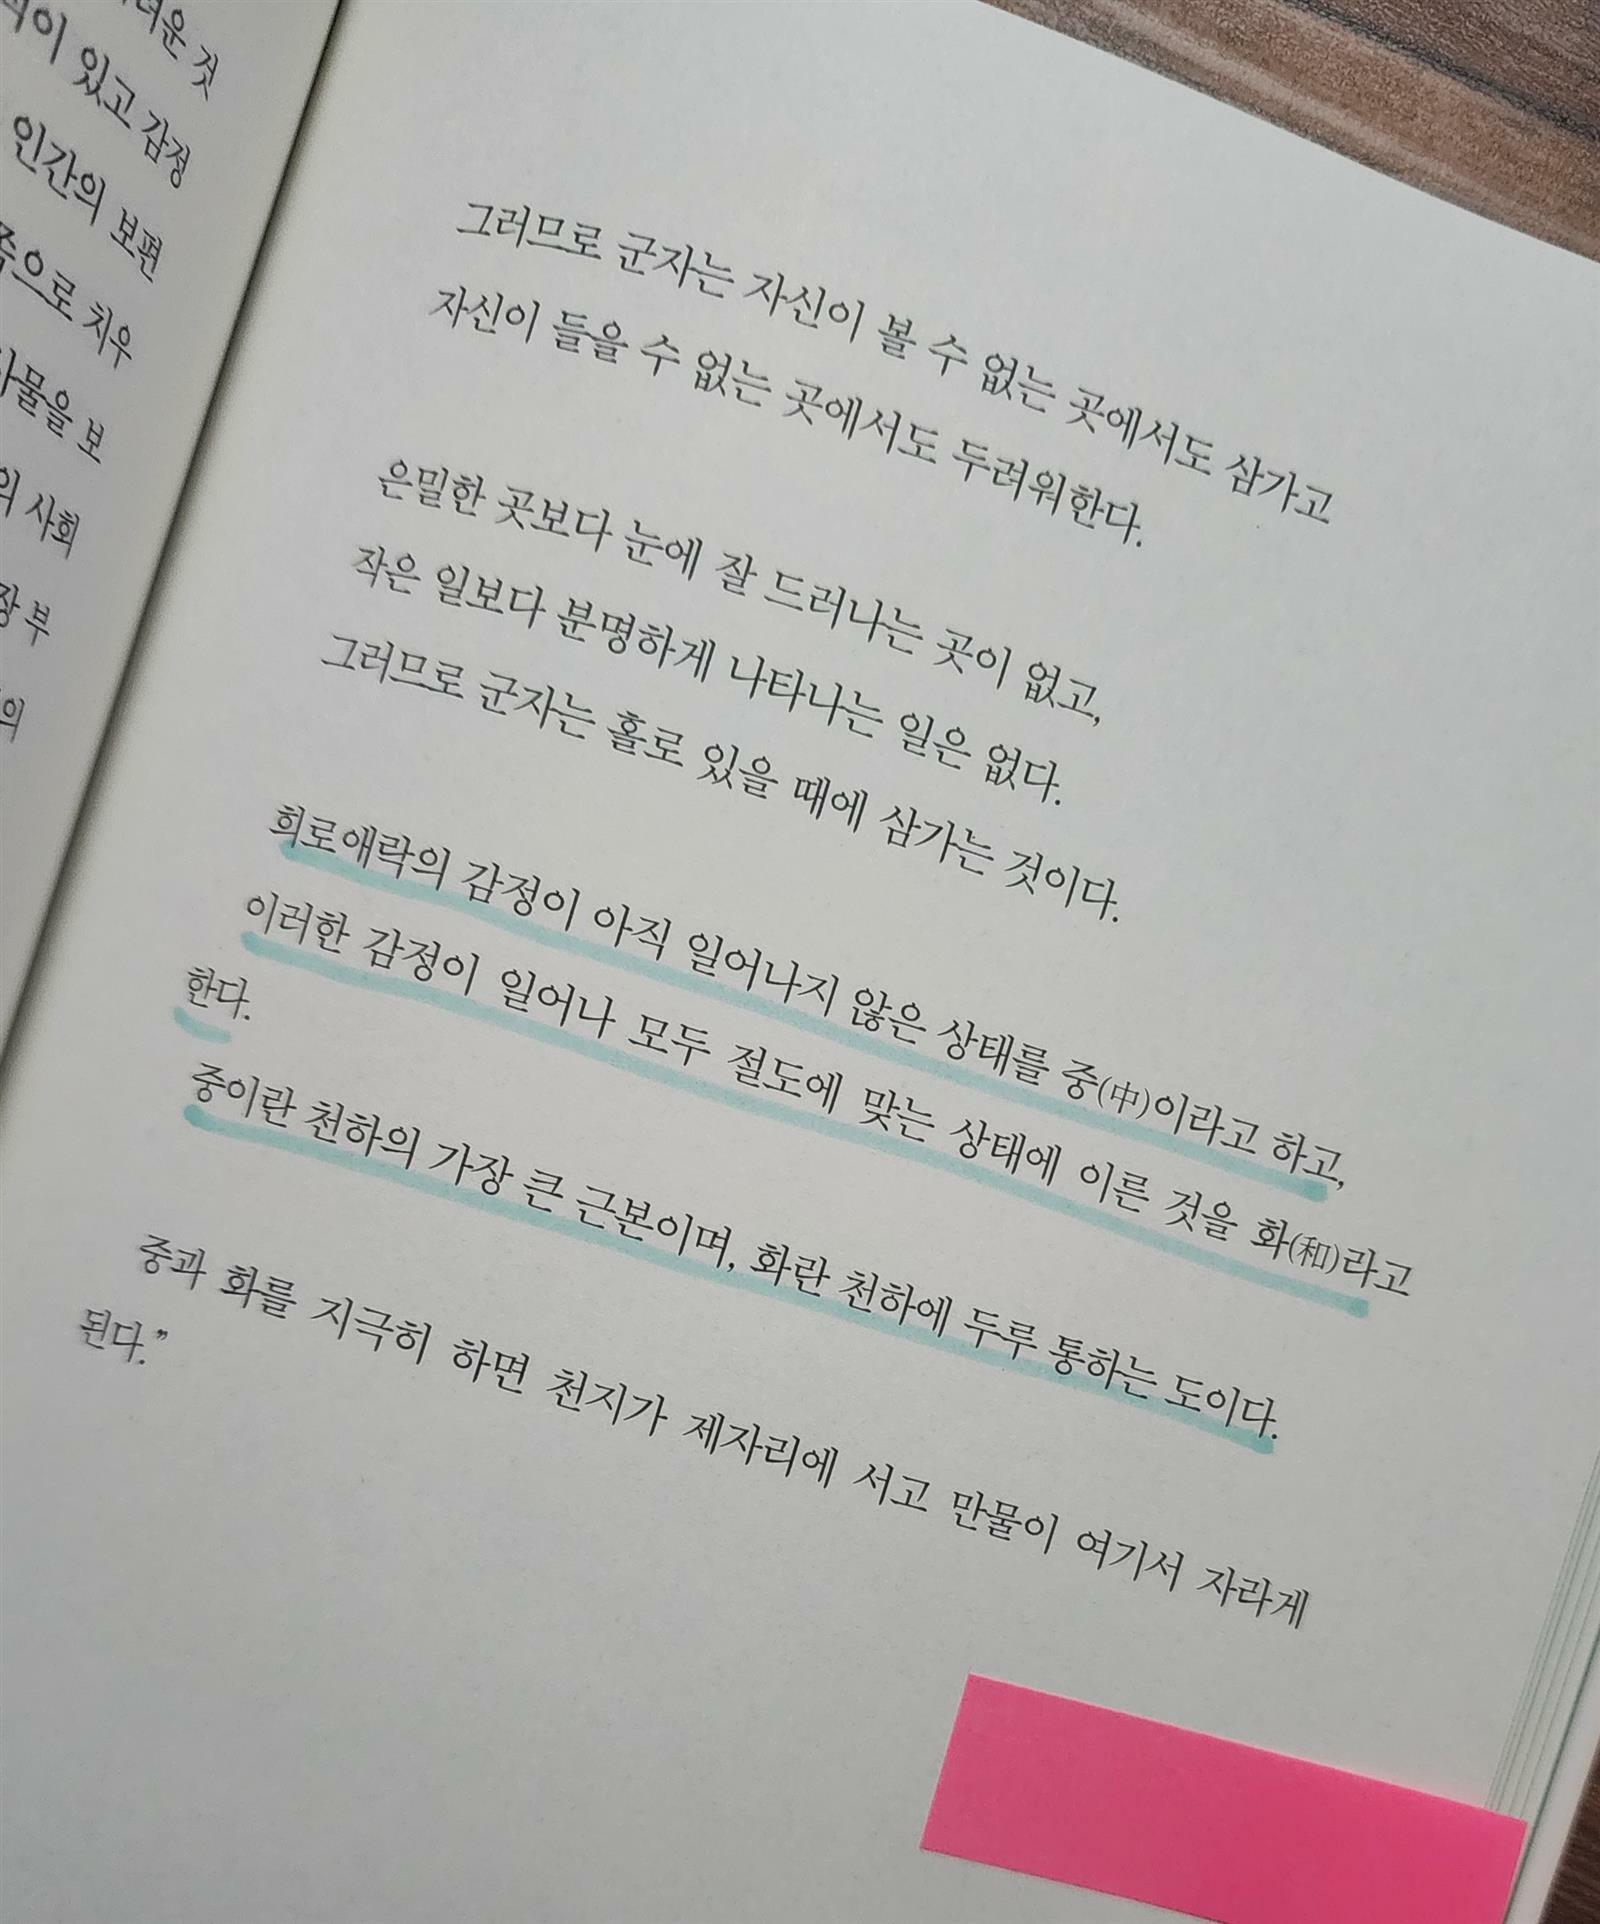 것
있고 감정
인간의 보편
으로 치우
사물을 보
사회
부
의
그러므로 군자는 자신이 볼 수 없는 곳에서도 삼가고
자신이 들을 수 없는 곳에서도 두려워한다.
은밀한 곳보다 눈에 잘 드러나는 곳이 없고,
작은 일보다 분명하게 나타나는 일은 없다.
그러므로 군자는 홀로 있을 때에 삼가는 것이다.
희로애락의 감정이 아직 일어나지 않은 상태를 중(中)이라고 하고,
이러한 감정이 일어나 모두 절도에 맞는 상태에 이른 것을 화(和)라고
한다.
중이란 천하의 가장 큰 근본이며, 화란 천하에 두루 통하는 도이다.
중과 화를 지극히 하면 천지가 제자리에 서고 만물이 여기서 자라게
된다.”